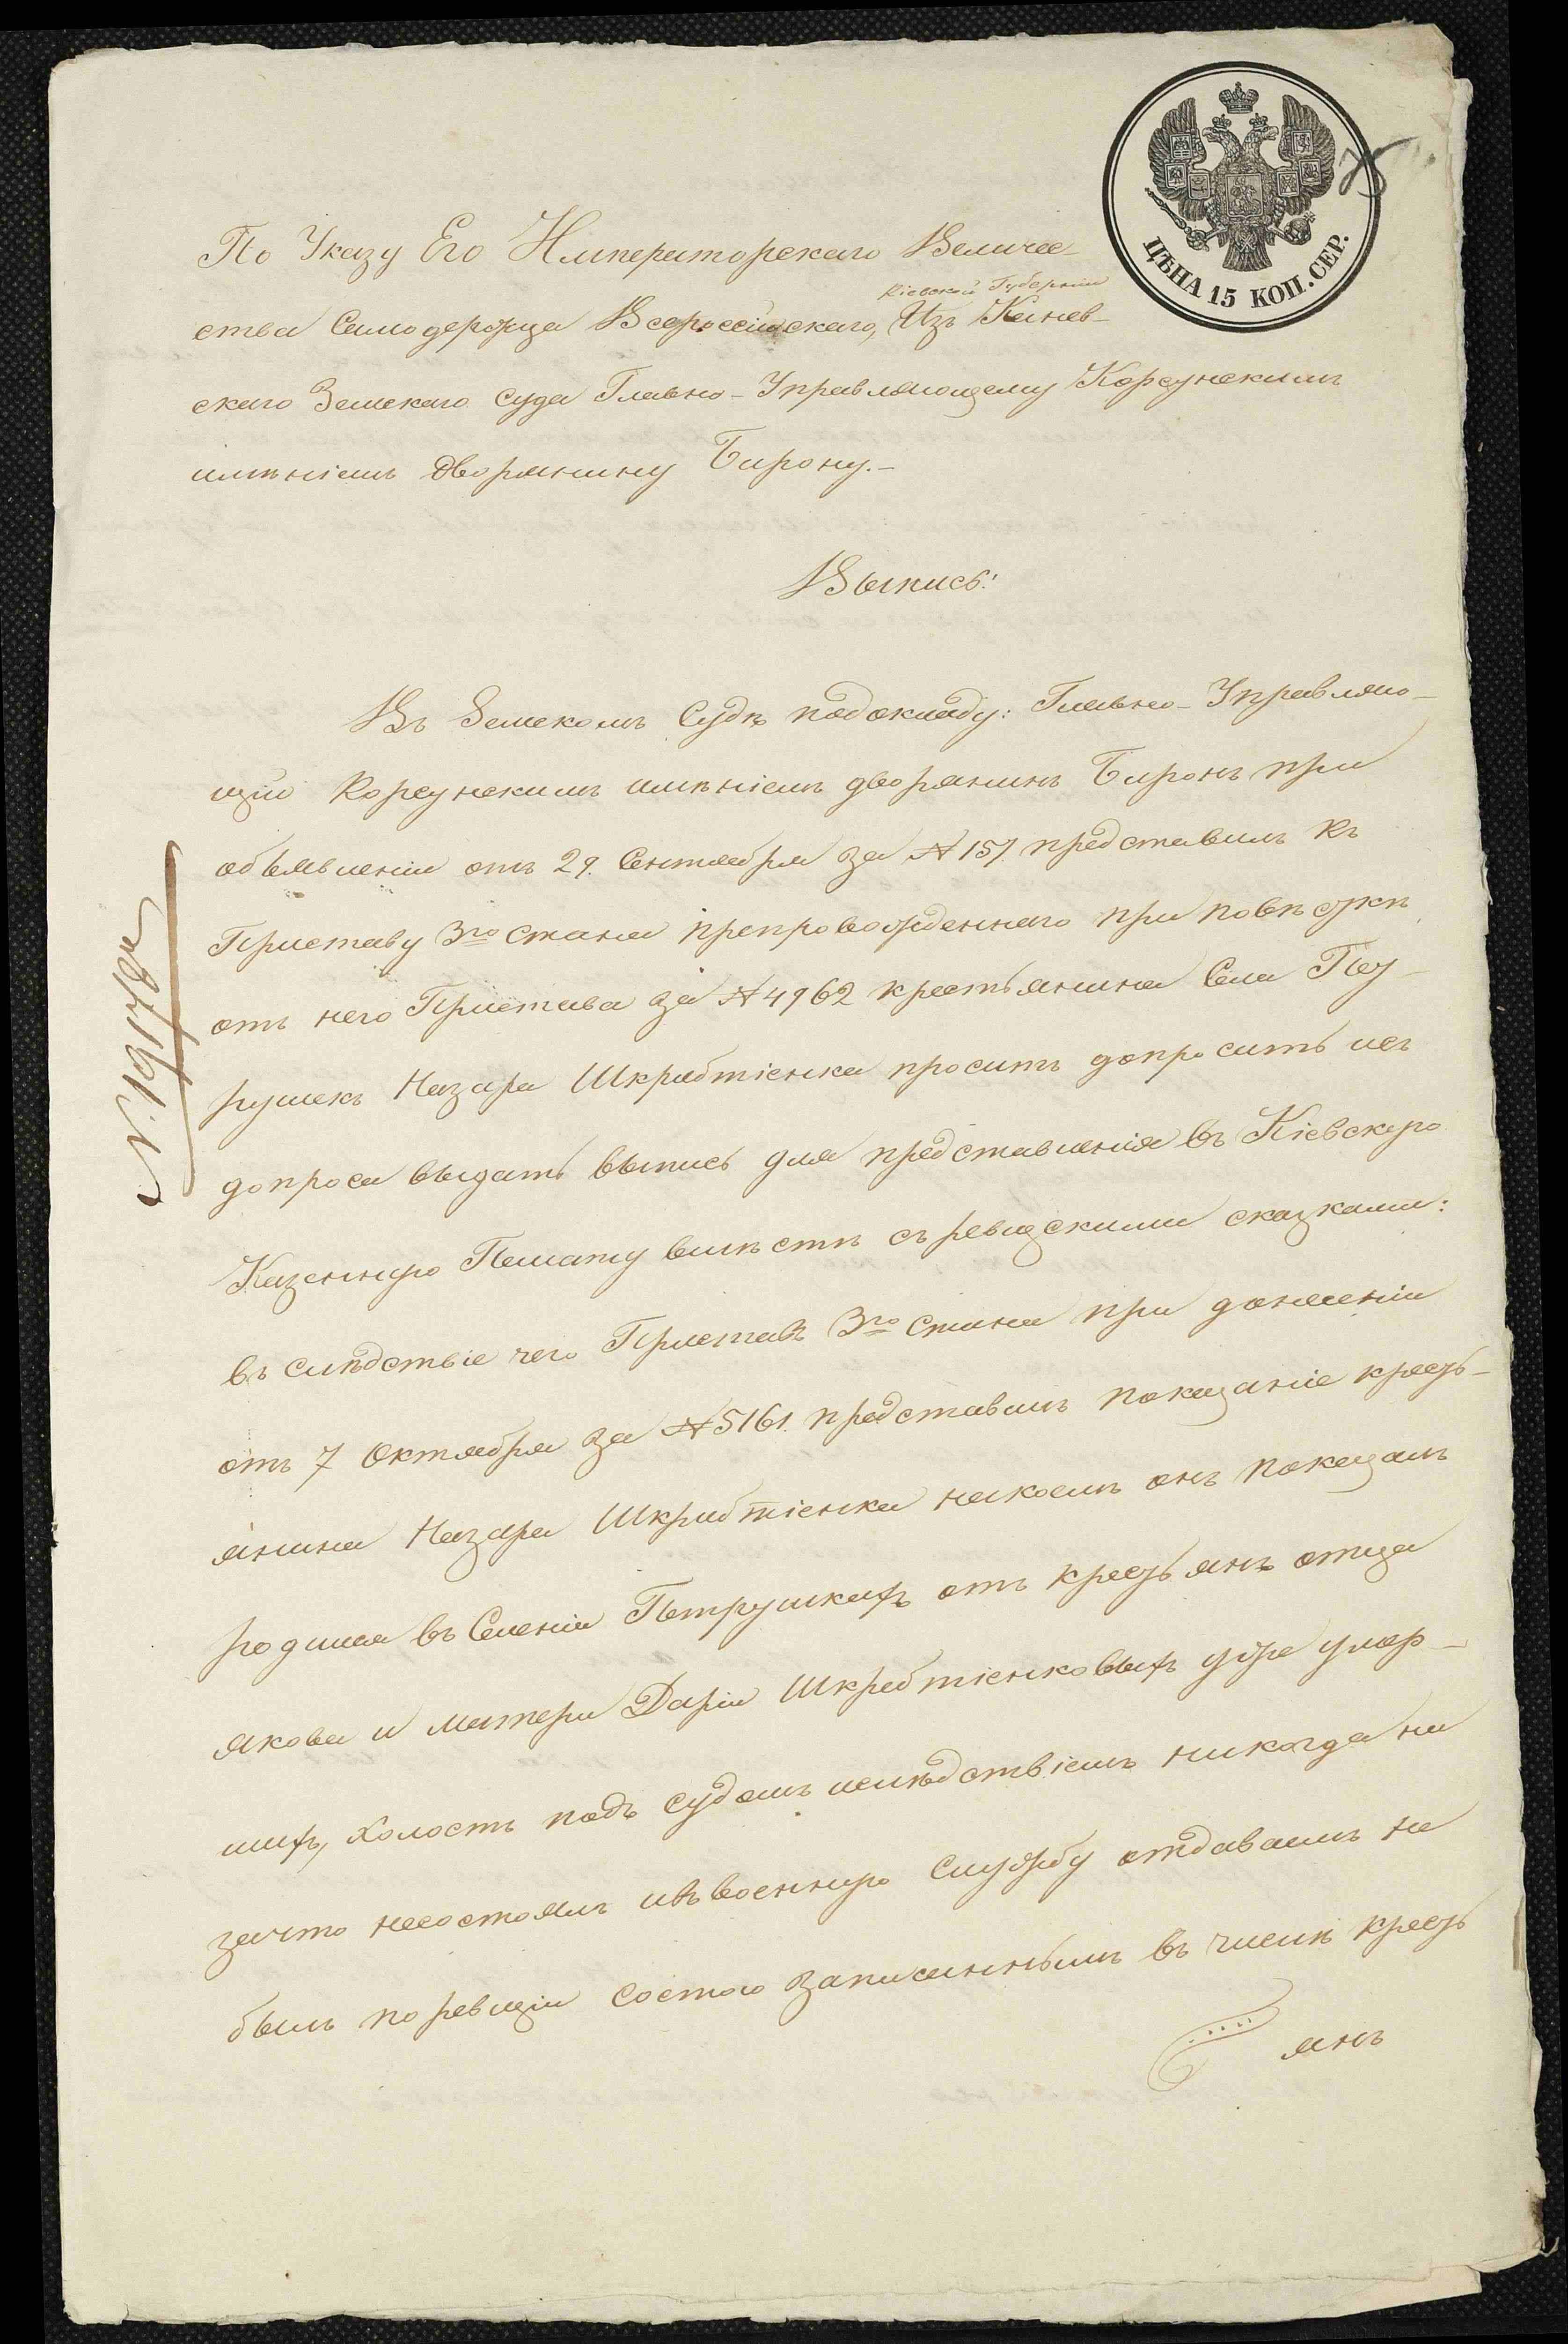 ЦѢНА 15 КОП. СЕР.
По Указу Его Императорскаго Величе-
Кіевской Губерніи
ства Самодержца Всероссійскаго, Изъ Канев-
скаго Земскаго Суда Главно-Управляющему Корсунскимъ
имѣніемъ дворянину Бирону.-
Выпись:
Въ Земскомъ Судѣ подокладу: Главно-Управляю-
щій Корсунскимъ имѣніемъ дворянинъ Биронъ при
объявленіи отъ 29. Сентября за № 157 представилъ къ
Приставу 3го стана препровожденнаго при повѣсткѣ
отъ него Пристава за № 4962 крестьянина Села Пет-
рушекъ Назара Шкрабтіенка проситъ допросить исъ
допроса выдать выпись для представленія въ Кіевскую
Казенную Палату вмѣстѣ съ ревизскими сказками:
въ слѣдствіе чего Приставъ 3го стана при донесеніи
отъ 7 Октября за № 5161. представилъ показаніе кресть-
янина Назара Шкрабтіенка накоемъ онъ показалъ
родился въ Селеніи Петрушкахъ отъ крестьянъ отца
Якова и матери Даріи Шкрабтіенковыхъ уже умер-
шихъ, холостъ подъ судомъ ислѣдствіемъ никогда ни
зачто несостоялъ ивъ военную службу отдаваемъ не
былъ по ревизіи состою записаннымъ въ числѣ кресть
янъ
№. 19178